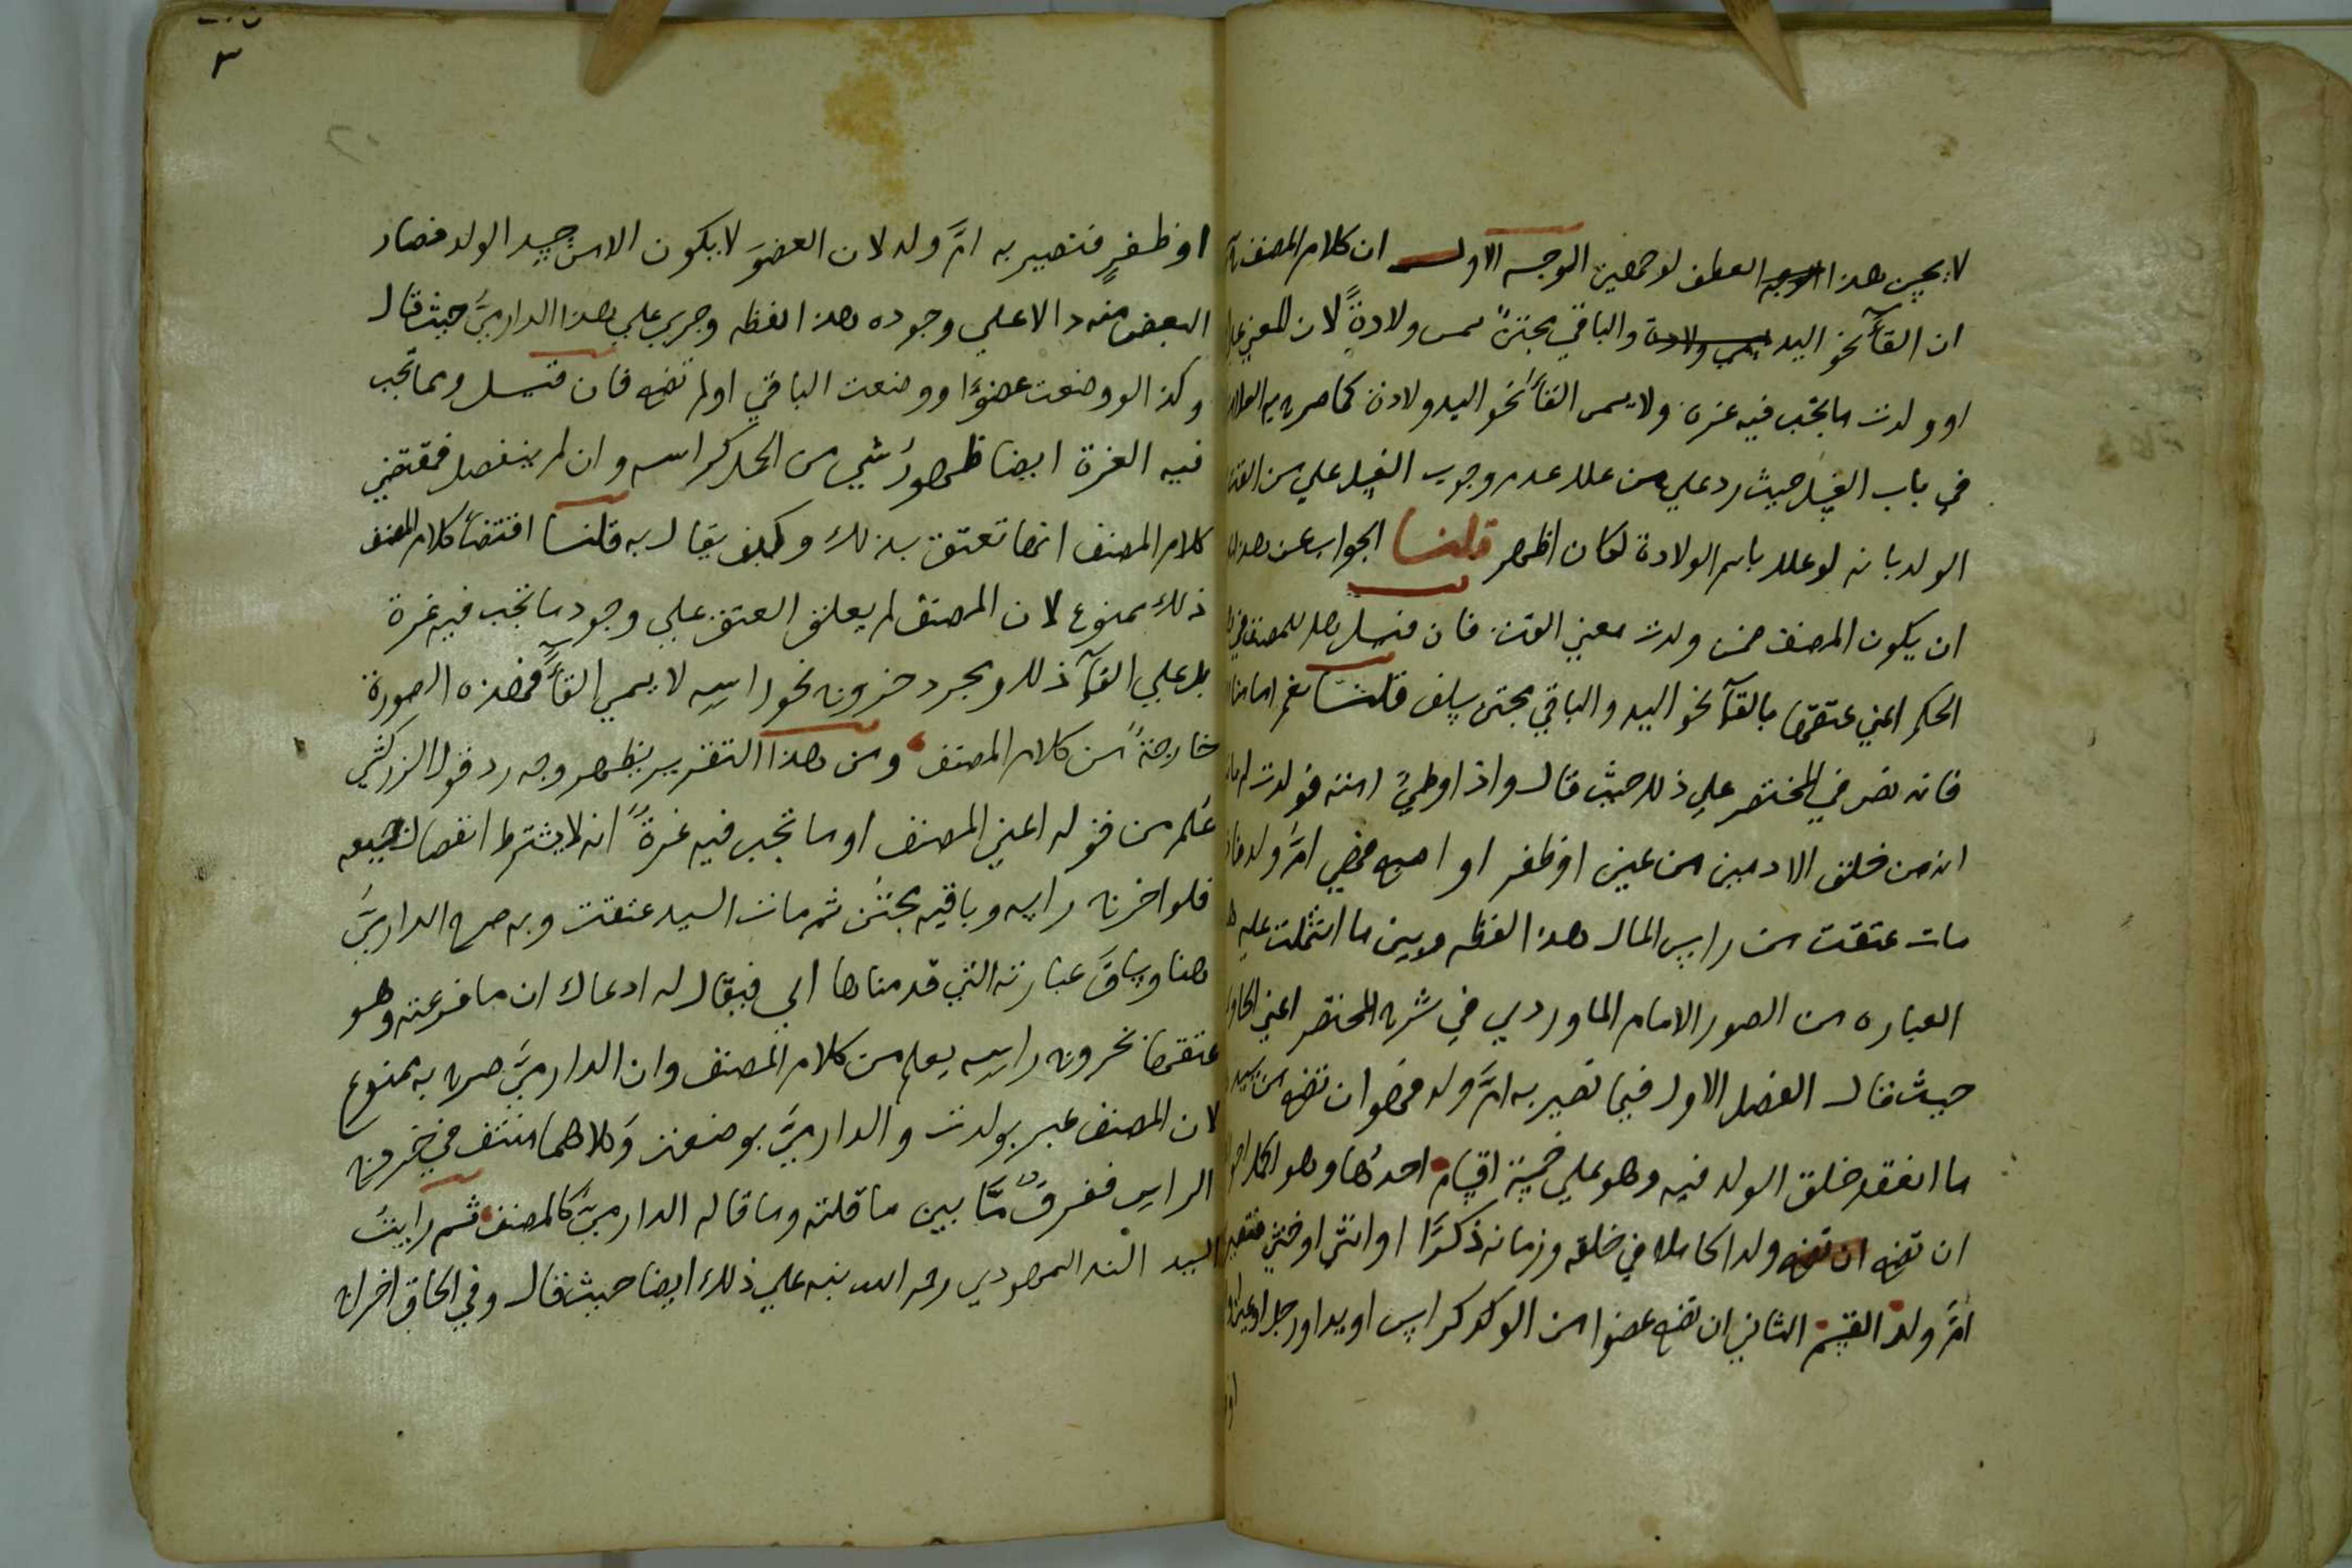 لا يحسن هذا الوجه العطف لوجهين الوجه الاول ان كلام المصنف
ان القآ نحو اليد والباقي مجتنّ ولادةً لان المعني
او ولدت ما تجب فيه غره ولا يسمى القآ نحو اليد ولادة كما صرح به
في باب الغسل حيث رد علي من علل عدم وجوب الغسل علي من القت
الولد بانه لو علل باسم الولادة لكان اظهر قلنا الجواب عن هذا
ان يكون المصنف ضمن ولدت معني القت فان قيل هل للمصنف في
الحكم اعني عتقها بالقآ نحو اليد والباقي مجتن سلف قلنا نعم امامنا
فانه نص في المختصر علي ذلك حيث قال واذا وطئ امته فولدت
انه من خلق الادميين من عين او ظفر او اصبع فهي امّ ولد
مات عتقت من راس المال هذا لفظه وبين ما اشتملت عليه
العباره من الصور الامام الماوردي في شرح المختصر اعني
حيث قال الفصل الاول فيما تصير به امّ ولد فهو ان تضع من سيد
ما انعقد خلق الولد فيه وهو علي خمسة اقسام احدها وهو اكمل
ان تضع ان تضع ولدا كاملا في خلقه وزمانه ذكرًا او انثى او خنثى
امّ ولد القسم الثاني ان تضع عضوا من الولد كراس او يد او رجل
او
٣
٢٠
او ظفرٍ فتصير به امّ ولد لان العضوَ لا يكون الا من جسد الولد فصار
البعض منه دالا علي وجوده هذا لفظه وجري علي هذا الدارميّ حيث قال
وكذا لو وضعت عضوًا ووضعت الباقي او لم تضع فان قيل ومما تجب
فيه الغرة ايضا ظهور شي من الحمل كراسه وان لم ينفصل فمقتضي
كلام المصنف انها تعتق بذلك وكيف يقال به قلنا اقتضآ كلام المصنف
ذلك ممنوع لان المصنف لم يعلق العتق علي وجود ما تجب فيه غرة
بل علي القآ ذلك ومجرد خروج نحو راسه لا يسمي القآً فهذه الصورة
خارجة من كلام المصنف ومن هذا التقرير يظهر وجه رد قول الزركشي
عُلم من قوله اعني المصنف او ما تجب فيه غرةٌ انه لا يشترط انفصال جميعه
فلو اخرج راسه وباقيه مجتن ثم مات السيد عتقت وبه صرح الدارميّ
هنا وساق عبارته التي قدمناها اي فيقال له ادعاك ان ما فرعته وهو
عتقها بخروج راسه يعلم من كلام المصنف وان الدارميّ صرح به ممنوع
لان المصنف عبر بولدت والدارميّ بوضعت وكلاهما منتف في خروج
الراس ففرق مّا بين ما قلته وما قاله الدارميّ كالمصنف ثم رايت
السيد السمهودي رحمه الله نبه علي ذلك ايضا حيث قال وفي الحاق اخراج